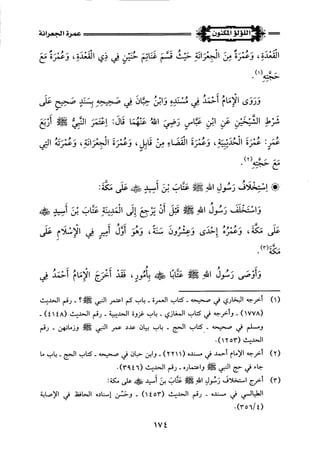 اللؤلؤ المكنون
عمرة الجعرانة
الْقَعْدَةِ، وَعُمْرَةً مِنَ الْجِعْرَانَةِ حَيْثُ قَسَّمَ غَنَائِمَ حُنَيْنٍ فِي ذِي الْقَعْدَةِ، وَعُمْرَةً مَعَ
حَجَّتِهِ(١).
وَرَوَى الْإِمَامُ أَحْمَدُ فِي مُسْنَدِهِ وَابْنُ حِبَّانَ فِي صَحِيحِهِ بِسَنَدٍ صَحِيحٍ عَلَى
شَرْطِ الشَّيْخَيْنِ عَنِ ابْنِ عَبَّاسٍ رَضِيَ اللهُ عَنْهُمَا قَالَ: اِعْتَمَرَ النَّبِيُّ ﷺ أَرْبَعَ
عُمَرٍ: عُمْرَةَ الْحُدَيْبِيَةِ، وَعُمْرَةَ الْقَضَاءِ مِنْ قَابِلٍ، وَعُمْرَةَ الْجِعْرَانَةِ، وَعُمْرَتَهُ التِي
مَعَ حَجَّتِهِ(٢).
۞ اِسْتِخْلَافُ رَسُولِ اللهِ ﷺ عَتَّابَ بْنَ أَسِيدٍ ﷺ عَلَى مَكَّةَ:
وَاسْتَخْلَفَ رَسُولُ اللهِ ﷺ قَبْلَ أَنْ يَرْجِعَ إِلَى الْمَدِينَةِ عَتَّابَ بْنَ أَسِيدٍ
عَلَى مَكَّةَ، وَعُمْرُهُ إِحْدَى وَعِشْرُونَ سَنَةً، وَهُوَ أَوَّلُ أَمِيرٍ فِي الْإِسْلَامِ عَلَى
مَكَّةَ(٣).
وَأَوْصَى رَسُولُ اللهِ ﷺ عَتَّابًا بِأُمُورٍ، فَقَدْ أَخْرَجَ الْإِمَامُ أَحْمَدُ فِي
(١) أخرجه البخاري في صحيحه - كتاب العمرة - باب كم اعتمر النبي ﷺ؟ - رقم الحديث
(١٧٧٨) - وأخرجه في كتاب المغازي - باب غزوة الحديبية - رقم الحديث (٤١٤٨) -
ومسلم في صحيحه - كتاب الحج - باب بيان عدد عمر النبي ﷺ وزمانهن - رقم
الحديث (١٢٥٣).
(٢) أخرجه الإمام أحمد في مسنده - (٢٢١١) - وابن حبان في صحيحه - كتاب الحج - باب ما
جاء في حج النبي ﷺ واعتماره - رقم الحديث (٣٩٤٦).
(٣) أخرج استخلاف رسول الله ﷺ عتاب بن أسيد على مكة:
الطيالسي في مسنده - رقم الحديث (١٤٥٣) - وحسن إسناده الحافظ في الإصابة
(٣٥٦/٤).
١٧٤